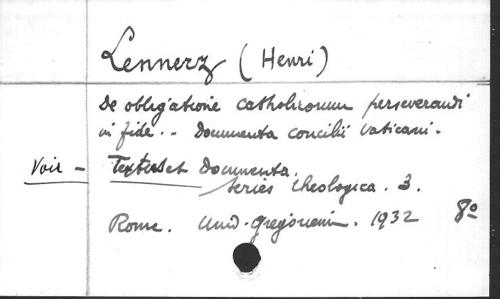 Lennerz (Henri)
De obligatione catholicorum perseverandi
in fide.. Documenta concilii Vaticani.
Voir - Textus et Documenta.
Series theologica. 3.
Rome. Univ. gregorienn. 1932 8º